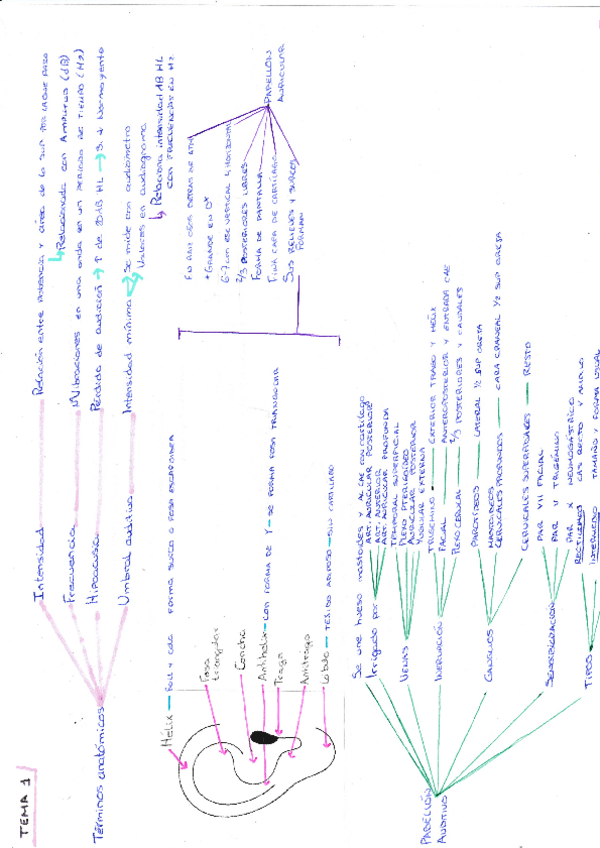 TEMA 1
Términos anatómicos
Intensidad
Relación entre potencia y área de la sup por la que pasa
Relacionada con Amplitud (dB)
Frecuencia
Nº Vibraciones en una onda en un periodo de tiempo (Hz)
Hipoacusia
Pérdida de audición → ↑ de 20 dB HL → Si ↓ Normoyente
Umbral auditivo
Intensidad mínima
Se mide con audiómetro
Valores en audiograma
Relaciona intensidad dB HL
con frecuencias en Hz
Hélix
Forma surco o fosa escafoidea
Fosa
triangular
Concha
Antihélix
con forma de Y
se forma fosa triangular
Trago
Antitrago
Lóbulo
Tejido adiposo
sin cartílago
En raíz ojos detrás de ATM
+ Grande en ♂
6-7 cm eje vertical y horizontal
2/3 posteriores libres
Forma de pantalla
Fina capa de cartílago
Sus relieves y surcos
forman
PABELLÓN
AURICULAR
PABELLÓN
AUDITIVO
Se une hueso mastoides y al CAE con cartílago
Irrigado por
Art. auricular posterior
Art. anterior
Art. auricular profunda
VENAS
Temporal superficial
Plexo pterigoideo
Auricular posterior
Yugular externa
INERVACIÓN
TRIGÉMINO
EXTERIOR TRAGO Y HÉLIX
FACIAL
ANTEROPOSTERIOR Y ENTRADA CAE
PLEXO CERVICAL
2/3 POSTERIORES Y CAUDALES
GANGLIOS
PAROTÍDEOS
LATERAL 1/2 SUP OREJA
MASTOIDEOS
CERVICALES PROFUNDOS
CARA CRANEAL 1/2 SUP OREJA
CERVICALES SUPERFICIALES
RESTO
SENSIBILIZACIÓN
PAR VII FACIAL
PAR V TRIGÉMINO
PAR X NEUMOGÁSTRICO
TIPOS
RECTILÍNEOS
CAE RECTO Y AMPLIO
INTERMEDIO
TAMAÑO Y FORMA USUAL